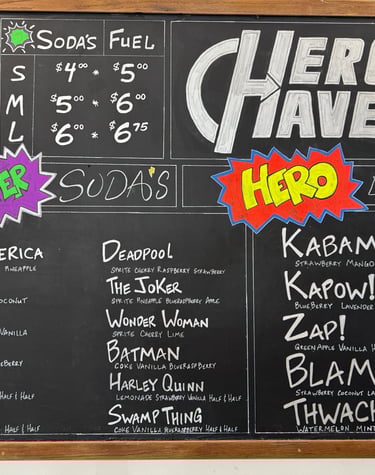 SODA'S FUEL
S $4.00 * $5.00
M $5.00 * $6.00
L $6.00 * $6.75
HERO
HAVE
ER SODA'S
HERO
ERICA
PINEAPPLE
OCONUT
VANILLA
EBERRY
HALF & HALF
HALF & HALF
DEADPOOL
SPRITE CHERRY RASPBERRY STRAWBERRY
THE JOKER
SPRITE PINEAPPLE BLUERASPBERRY APPLE
WONDER WOMAN
SPRITE CHERRY LIME
BATMAN
COKE VANILLA BLUERASPBERRY
HARLEY QUINN
LEMONADE STRAWBERRY VANILLA HALF & HALF
SWAMP THING
COKE VANILLA BLUERASPBERRY HALF & HALF
KABAM
STRAWBERRY MANGO
KAPOW!
BLUEBERRY LAVENDER
ZAP!
GREEN APPLE VANILLA
BLAM
STRAWBERRY COCONUT LA
THWACK
WATERMELON MINT